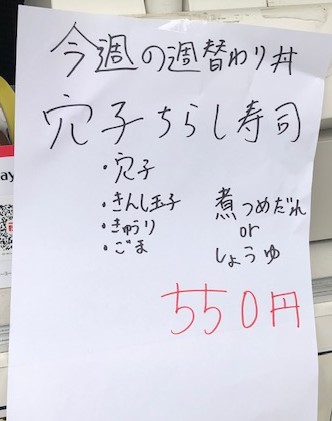 今週の週替わり丼
穴子ちらし寿司
・穴子
・きんし玉子
・きゅうり
・ごま
煮つめだれ
or
しょうゆ
550円
ay